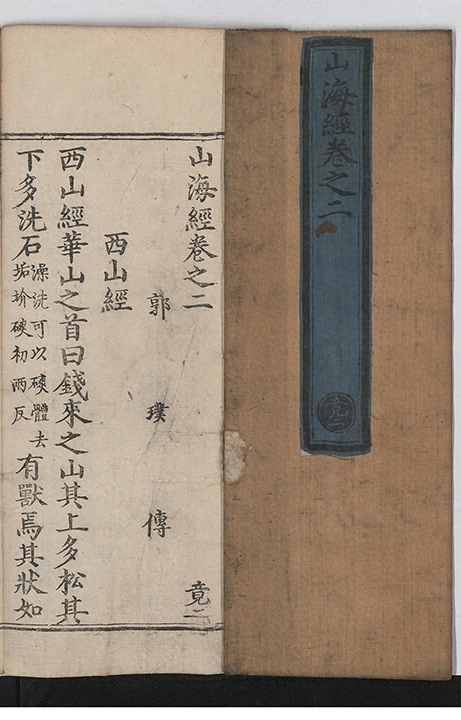 山海經卷之二
竟二
山海經卷之二
竟二
郭璞傳
西山經
西山經華山之首曰錢來之山其上多松其
下多洗石澡洗可以磢體去垢圿磢初兩反有獸焉其狀如